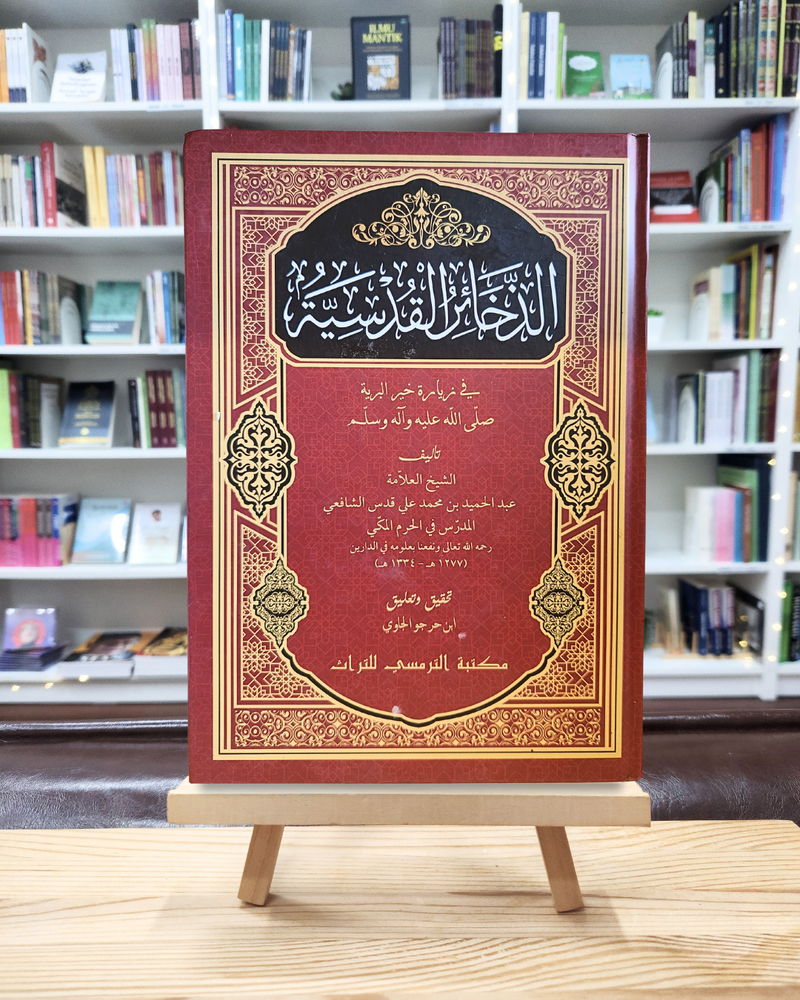 ILMU
MANTIK
الذَّخَائِرُ القُدْسِيَّةُ
في زيارة خير البرية
صلّى الله عليه وآله وسلّم
تأليف
الشيخ العلاّمة
عبد الحميد بن محمد علي قدس الشافعي
المدرّس في الحرم المكّي
رحمه الله تعالى ونفعنا بعلومه في الدارين
(١٢٧٧ هـ - ١٣٣٤ هـ)
تحقيق وتعليق
ابن حرجو الجاوي
مكتبة الترمسي للتراث